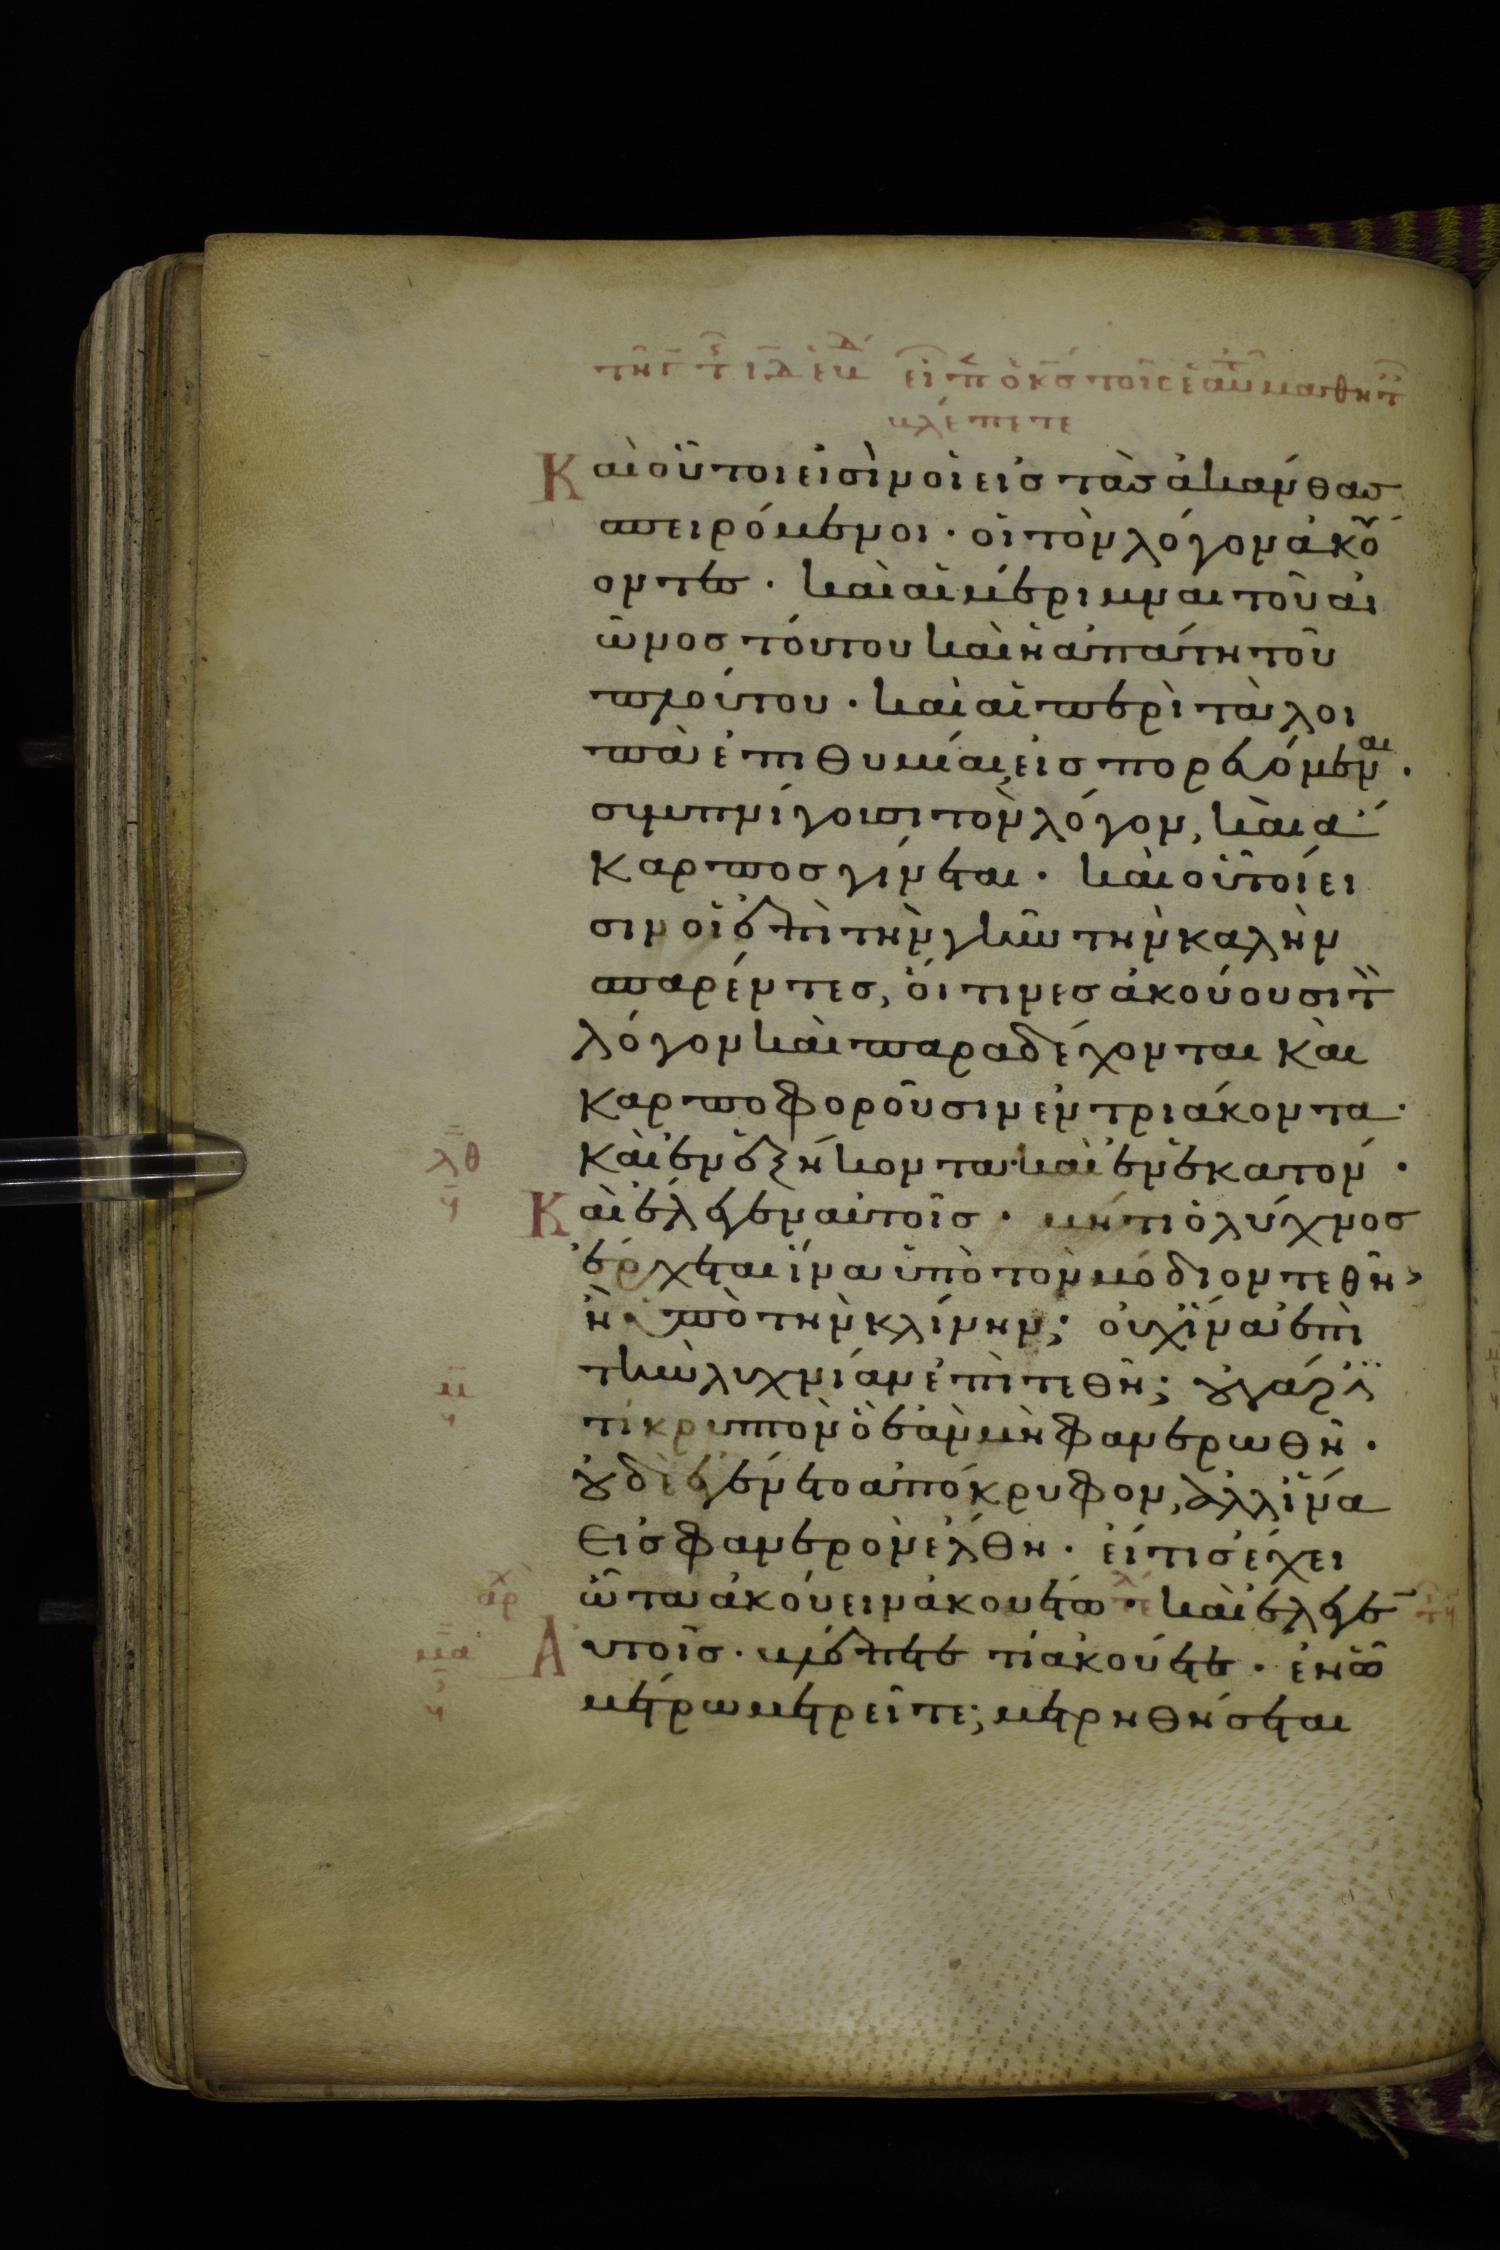 τῆς
εἶπ ὁ κς τοῖς ἑαυ μαθητ
βλέπετε
Καὶ οὗτοι εἰσὶν οἱ εἰς τὰς ἀκάνθας
σπειρόμενοι · οἱ τὸν λόγον ἀκού
οντες · καὶ αἱ μέριμναι τοῦ αἰ
ῶνος τούτου καὶ ἡ ἀπάτη τοῦ
πλούτου · καὶ αἱ περὶ τὰ λοι
πὰ ἐπιθυμίαι εἰσπορευόμεναι ·
συμπνίγουσι τὸν λόγον, καὶ ἄ
καρπος γίνεται · καὶ οὗτοί εἰ
σιν οἱ ἐπὶ τὴν γῆν τὴν καλὴν
σπαρέντες, οἵτινες ἀκούουσι τὸν
λόγον καὶ παραδέχονται καὶ
καρποφοροῦσιν ἐν τριάκοντα ·
λθ
καὶ ἐν ἑξήκοντα · καὶ ἐν ἑκατόν ·
Καὶ ἔλεγεν αὐτοῖς · μήτι ὁ λύχνος
ἔρχεται ἵνα ὑπὸ τὸν μόδιον τεθῆ
ἢ ὑπὸ τὴν κλίνην; οὐχ ἵνα ἐπὶ
μ
τὴν λυχνίαν ἐπιτεθῆ; οὐ γάρ ἐ
τί κρυπτὸν ὃ ἐὰν μὴ φανερωθῆ ·
οὐδὲ ἐγένετο ἀπόκρυφον, ἀλλ ἵνα
εἰς φανερὸν ἔλθη · εἴ τις ἔχει
αρχ
ὦτα ἀκούειν ἀκουέτω · καὶ ἔλεγεν
μα
Αὐτοῖς · βλέπετε τί ἀκούετε · ἐν ᾧ
μέτρω μετρεῖτε; μετρηθήσεται